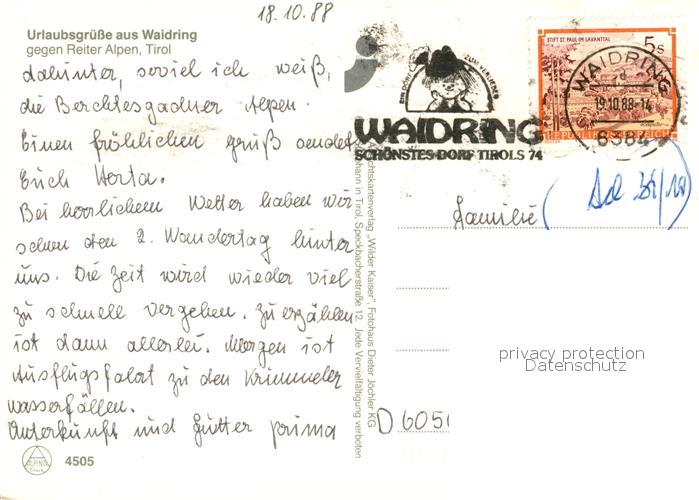 18.10.88
Urlaubsgrüße aus Waidring
gegen Reiter Alpen, Tirol
dahinter, soviel ich weiß,
die Berchtesgadner Alpen.
Einen fröhlichen Gruß sendet
Euch Herta.
Bei herrlichem Wetter haben wir
schon den 2. Wandertag hinter
uns. Die Zeit wird wieder viel
zu schnell vergehen. Zu erzählen
ist dann allerlei. Morgen ist
Ausflugsfahrt zu den Krimmeler
Wasserfällen.
Unterkunft und Futter prima
ALPINA
4505
ZUM VERLIEBEN
WAIDRING
SCHÖNSTES DORF TIROLS 74
STIFT ST. PAUL IM LAVANTTAL
5 S
REPUBLIK ÖSTERREICH
WAIDRING
19.10.88-14
6384
chtskartenverlag „Wilder Kaiser", Fotohaus Dieter Jöchler KG
ohann in Tirol, Speckbacherstraße 12 Jede Vervielfältigung verboten
Familie
privacy protection
Datenschutz
D 6051